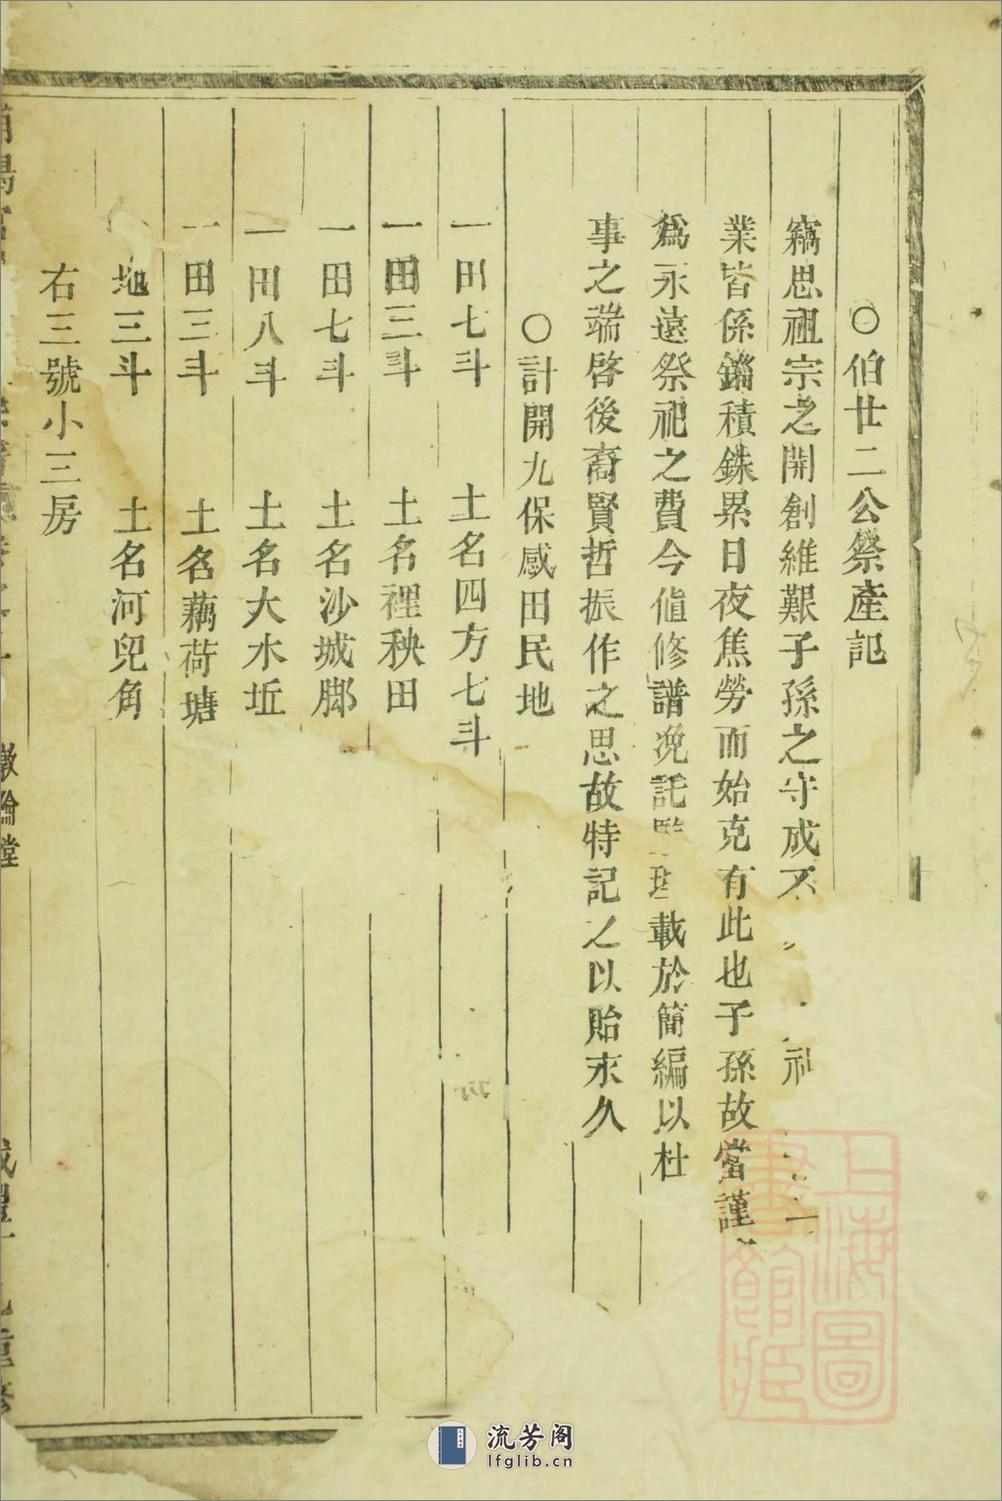 〇伯廿二公祭產記
竊思祖宗之開創維艱子孫之守成不
業皆係錙積銖累日夜焦勞而始克有此也子孫故當謹
爲永遠祭祀之費今値修譜浼託載於簡編以杜
事之端啓後裔賢哲振作之思故特記之以貽末久
〇計開九保感田民地
一田七斗 土名四方七斗
一田三斗 土名裡秧田
一田七斗 土名沙城脚
一田八斗 土名大水坵
一田三斗 土名藕荷塘
地三斗 土名河兜角
右三號小三房
上海圖書館藏
流芳阁
lfglib.cn